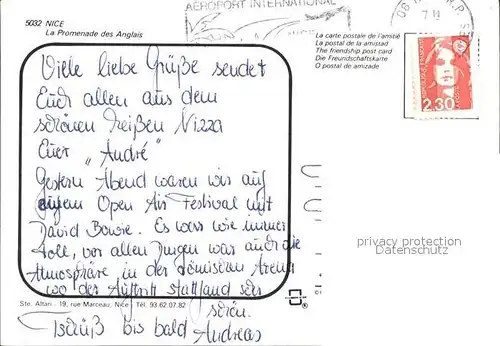 5032 NICE
La Promenade des Anglais
AÉROPORT INTERNATIONAL
La carte postale de l'amitié
La postal de la amistad
The friendship post card
Die Freundschaftskarte
O postal de amizade
2,30
Viele liebe Grüße sendet
Euch allen aus dem
schönen heißen Nizza
Euer „André"
Gestern Abend waren wir auf
einem Open Air Festival mit
David Bowie. Es war wie immer
toll, vor allen Dingen war auch die
Atmosphäre in der römischen Arena
wo der Auftritt stattfand sehr
schön.
Tschüß bis bald Andreas
privacy protection
Datenschutz
Ste. Altari - 19, rue Marceau, Nice - Tél. 93.62.07.82
®